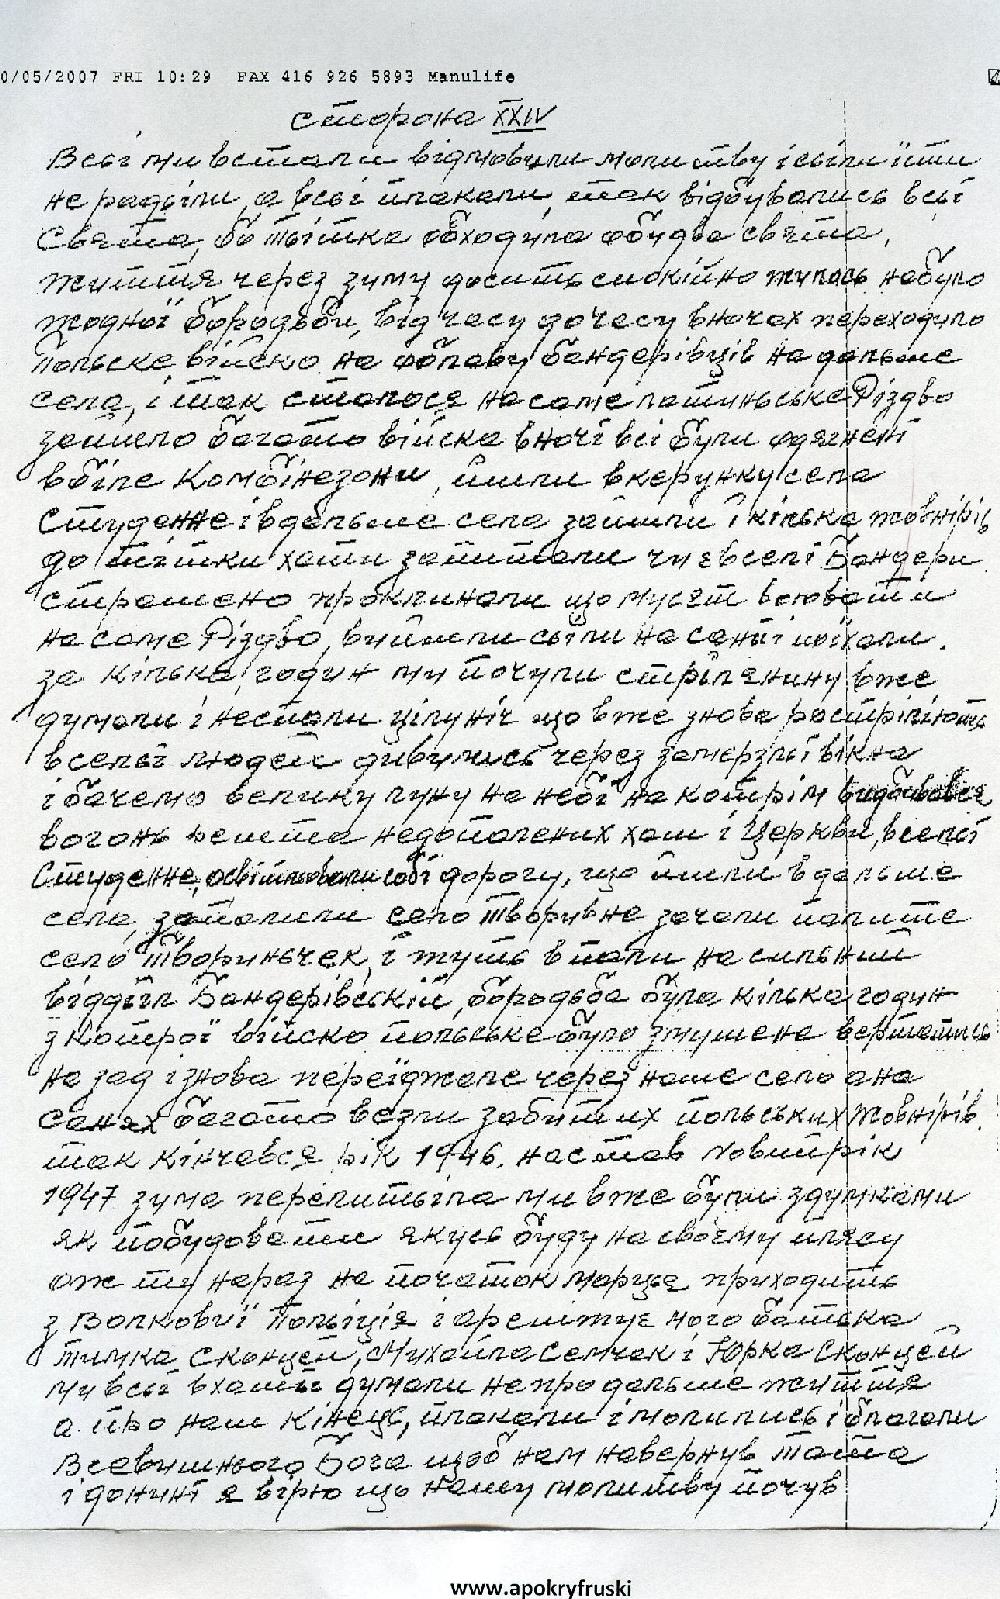 0/05/2007 FRI 10:29 FAX 416 926 5893 Manulife
сторона XXIV
Всьі ми встали відмовили молитву і сьіли їсти
не радьіли, а всьі плакали, так відбувались всьі
Свята, бо тьітка обходила обидва свята,
життя через зиму досить спокійно жилось небуло
жодної бородьби, від часу дочесу вночах переходило
польске війско на облаву бандерівців на дальше
села, і так сталося на саме латиньське Різдво
зайшло багато війска вночі всі були одягнені
в біле Комбінезони, йшли вкерунку села
Студенне і вдальше села зайшли і кілька жовнірів
до тьітки хати запитали чи є в селі Бандери
страшено проклинали що мусят воювати
на саме Різдво, вийшли сьіли на саньі і поїхали.
за кілька годин ми почули стрілянину вже
думали і неспали цілу ніч що вже знова розстрілюють
в сельі людей дивились через замерзлі вікна
і бачемо велику луну на небі на котрім видбивався
вогонь решта недопалених хат і Церкви, всельі
Студенне, освітлювали собі дорогу, що йшли в дальше
села, запалили село Творивне зачали палите
село Творильчек, і тутъ впали на сильний
віддьіл Бандерівській, бородьба була кілька годин
з котрої війско польське було змушене вертатись
на зад і знова переїджале через наше село а на
санях багато везли забитих польських Жовнірів.
так кінчався рік 1946. настав Новий рік
1947 зима перелитьіла ми вже були здумками
як побудовати якусь буду на своєму плясу
аж ту нараз на початок марця приходить
з Волковиї Польіція і арештує мого батька
Тимка Сконцей, Михайла Семчак і Юрка Сконцей
ми всьі в хатьі думали не про дальше життя
а про наш Кінець, плакали і молились і благали
Всевишнього Бога щоб нам навернув тата
і донині я вірю що нашу молитву почув
www.apokryfruski